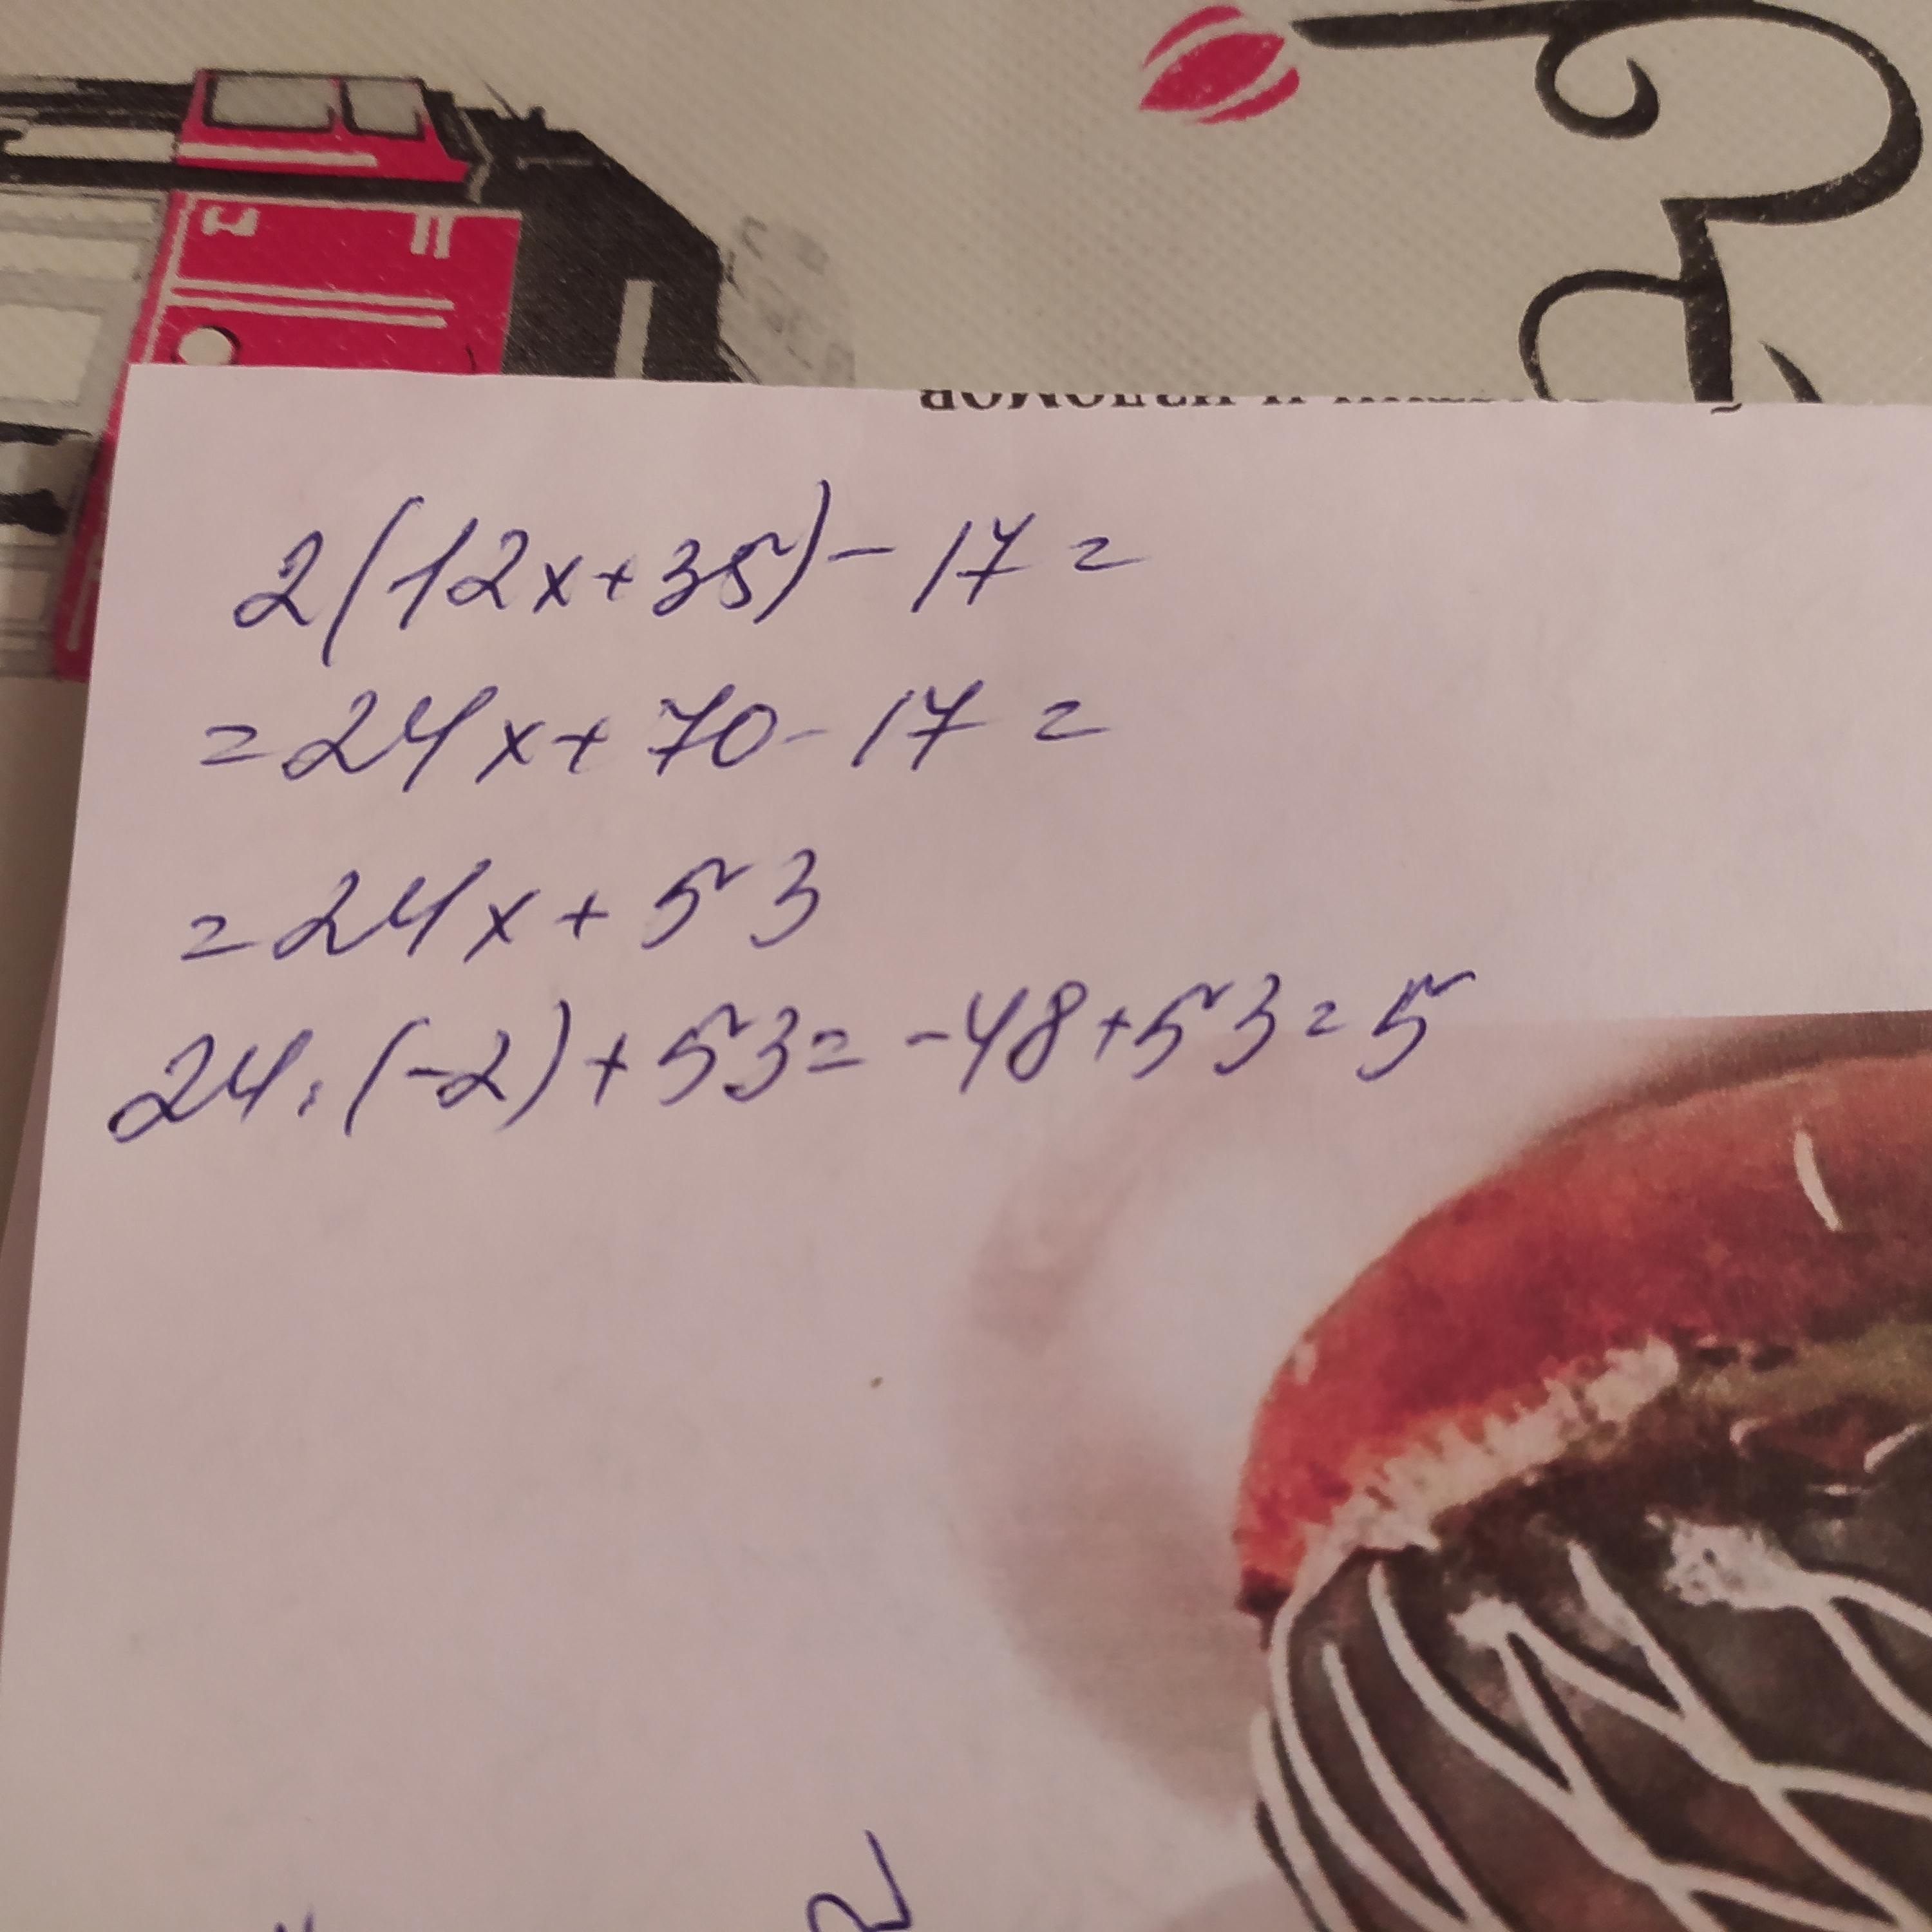 2(12x+35)-17=
=24x+70-17=
=24x+53
24·(-2)+53=-48+53=5